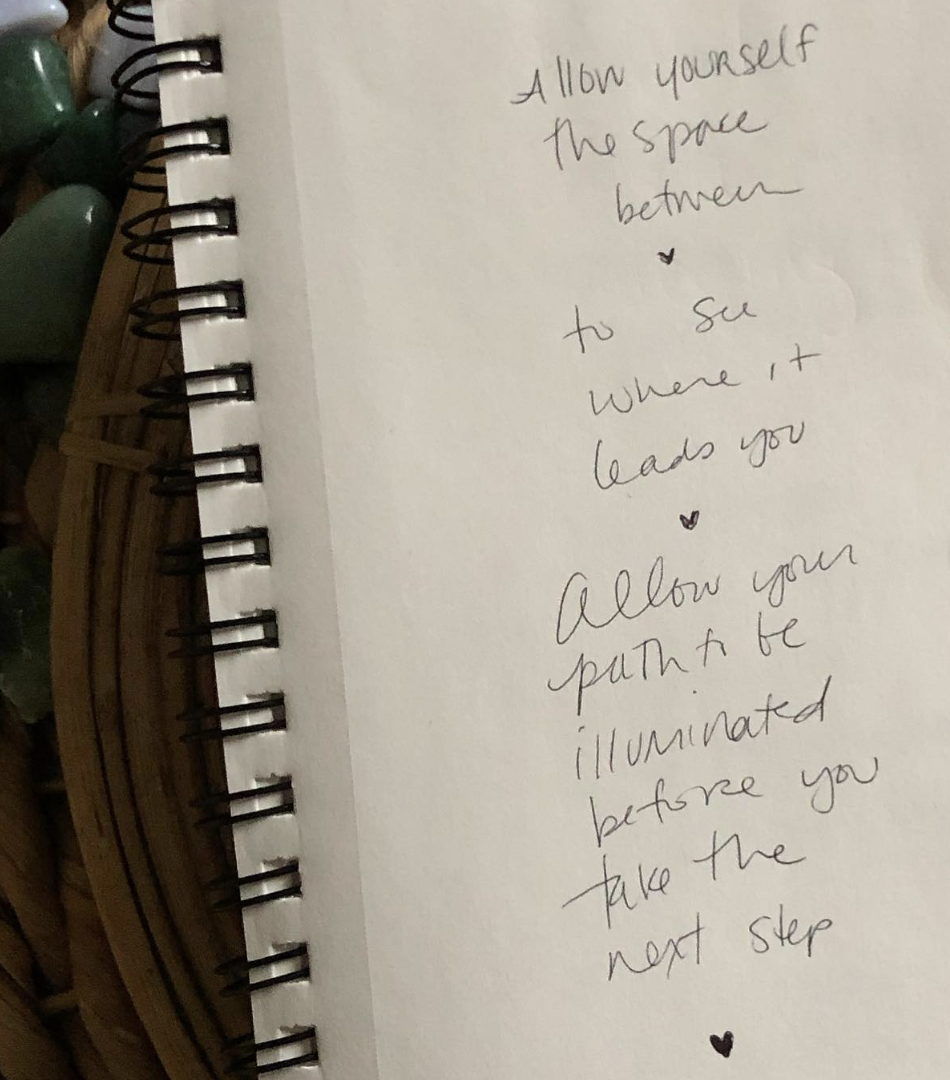 Allow yourself
the space
between
♥
to see
where it
leads you
♥
Allow your
path to be
illuminated
before you
take the
next step
♥